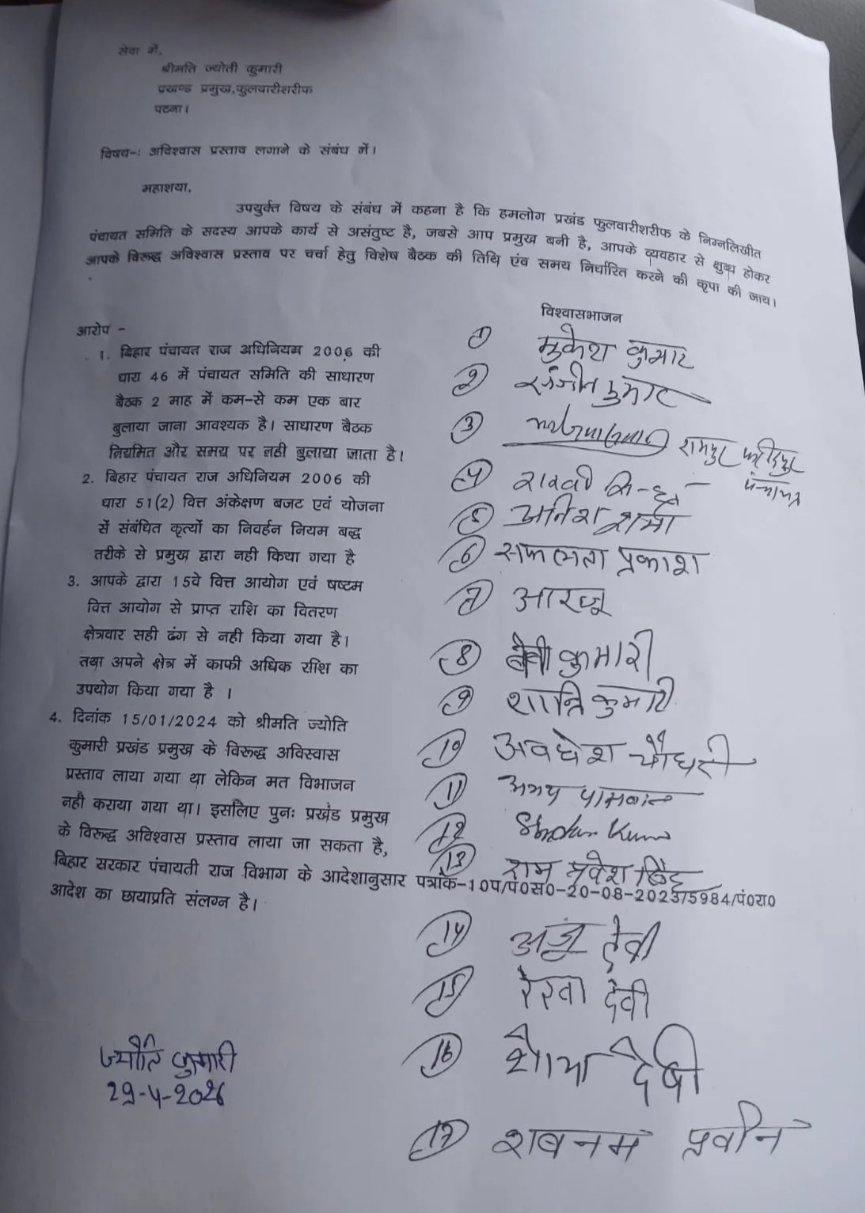 सेवा में,
श्रीमति ज्योती कुमारी
प्रखण्ड प्रमुख,फुलवारीशरीफ
पटना।
विषय-: अविश्वास प्रस्ताव लगाने के संबंध में।
महाशया,
उपर्युक्त विषय के संबंध में कहना है कि हमलोग प्रखंड फुलवारीशरीफ के निम्नलिखीत
पंचायत समिति के सदस्य आपके कार्य से असंतुष्ट है, जबसे आप प्रमुख बनी है, आपके व्यवहार से क्षुब्ध होकर
आपके विरूद्ध अविश्वास प्रस्ताव पर चर्चा हेतु विशेष बैठक की तिथि एंव समय निर्धारित करने की कृपा की जाय।
आरोप -
1. बिहार पंचायत राज अधिनियम 2006 की
धारा 46 में पंचायत समिति की साधारण
बैठक 2 माह में कम-से कम एक बार
बुलाया जाना आवश्यक है। साधारण बैठक
नियमित और समय पर नही बुलाया जाता है।
2. बिहार पंचायत राज अधिनियम 2006 की
धारा 51(2) वित्त अंकेक्षण बजट एवं योजना
सें संबंधित कृत्यों का निवर्हन नियम बद्ध
तरीके से प्रमुख द्वारा नही किया गया है
3. आपके द्वारा 15वे वित्त आयोग एवं षष्टम
वित्त आयोग से प्राप्त राशि का वितरण
क्षेत्रवार सही ढंग से नही किया गया है।
तथा अपने क्षेत्र में काफी अधिक राशि का
उपयोग किया गया है ।
4. दिनांक 15/01/2024 को श्रीमति ज्योति
कुमारी प्रखंड प्रमुख के विरूद्ध अविस्वास
प्रस्ताव लाया गया था लेकिन मत विभाजन
नही कराया गया था। इसलिए पुनः प्रखंड प्रमुख
के विरूद्ध अविश्वास प्रस्ताव लाया जा सकता है,
बिहार सरकार पंचायती राज विभाग के आदेशानुसार पत्रांक-10प/पं0स0-20-08-2023/5984/पं0रा0
आदेश का छायाप्रति संलग्न है।
विश्वासभाजन
1 मुकेश कुमार
2 कुमार
3 रामपुर फरीदपुर
पंचायत
4
5 अनिश शर्मा
6 सफलता प्रकाश
7 आरजू
8 बेबी कुमारी
9 शान्ति कुमारी
10 अवधेश चौधरी
11 अभय पासवान
12
13 राम प्रवेश सिंह
14 अंजू देवी
15 रेखा देवी
16 देवी
17 शबनम प्रवीन
ज्योति कुमारी
29-4-2026